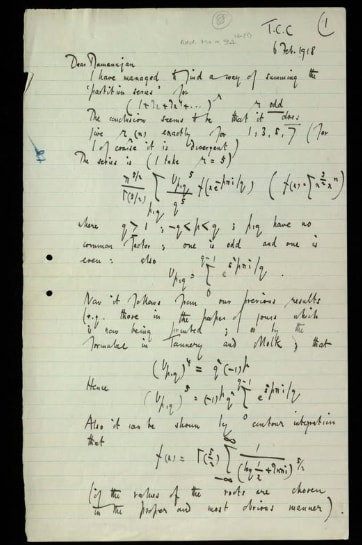 1
T.C.C
6 Feb. 1918
Dear Ramanujan
I have managed to find a way of summing the
'partition series' for
(1+2q+2q⁴+...)^r r odd
The conclusion seems to be that it does
give r_r(n) exactly for 1, 3, 5, 7 (for
1 of course it is divergent)
The series is (I take r=5)
π^{5/2}/Γ(5/2) ∑_{p,q} U_{p,q}^5/q^5 f(xe^{-pπi/q}) (f(x) = ∑ n^{3/2} x^n)
where q > 1; -q<p<q; p,q have no
common factor; one is odd and one is
even; also
U_{p,q} = ∑_0^{q-1} e^{s²pπi/q}.
Now it follows from our previous results
(e.g. those in the paper of yours which
is now being printed; or by the
formulae in Tannery and Molk; that
(U_{p,q})⁴ = q²(-1)^p
Hence
(U_{p,q})⁵ = (-1)^p q² ∑_0^{q-1} e^{s²pπi/q}
Also it can be shown by contour integration
that
f(x) = Γ(5/2) ∑_{-∞}^{∞} 1/(log 1/x + 2nπi)^{5/2}
(if the values of the roots are chosen
in the proper and most obvious manner)